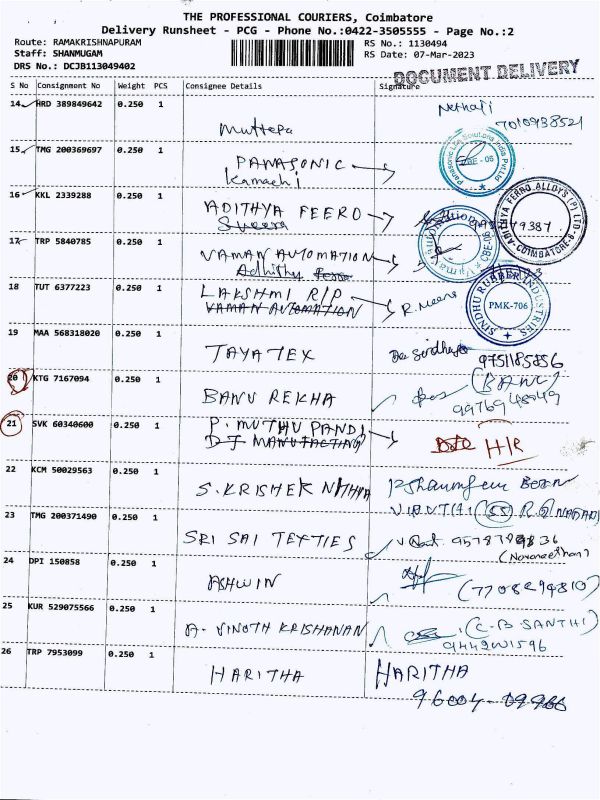 THE PROFESSIONAL COURIERS, Coimbatore
Delivery Runsheet - PCG - Phone No.:0422-3505555 - Page No.:2
Route: RAMAKRISHNAPURAM
RS No.: 1130494
Staff: SHANMUGAM
RS Date: 07-Mar-2023
DRS No.: DCJB113049402
DOCUMENT DELIVERY
S No Consignment No Weight PCS Consignee Details Signature
14 HRD 389849642 0.250 1
Nethaji
7010938521
Muttepa
15 TMG 200369697 0.250 1
PANASONIC
Kamachi
16 KKL 2339288 0.250 1
ADITHYA FEERO
ADITHYA FERRO ALLOYS (P) LTD
COIMBATORE
17 TRP 5840785 0.250 1
VAMAN AUTOMATION
Adhithy
18 TUT 6377223 0.250 1
LAKSHMI R/P
R. Meena
VAMAN AUTOMATION
SINDHU RUBBER INDUSTRIES
PMK-706
19 MAA 568318020 0.250 1
TAYATEX
9751185856
20 KTG 7167094 0.250 1
(BANU)
BANU REKHA
21 SVK 60340600 0.250 1
P. MUTHU PANDI
H/R
22 KCM 50029563 0.250 1
23 TMG 200371490 0.250 1
SRI SAI TEXTIES
(Navaneethan)
24 DPI 150858 0.250 1
ASHWIN
(7708294810)
25 KUR 529075566 0.250 1
A. VINOTH KRISHANAN
(C.B SANTHI)
26 TRP 7953099 0.250 1
HARITHA
HARITHA